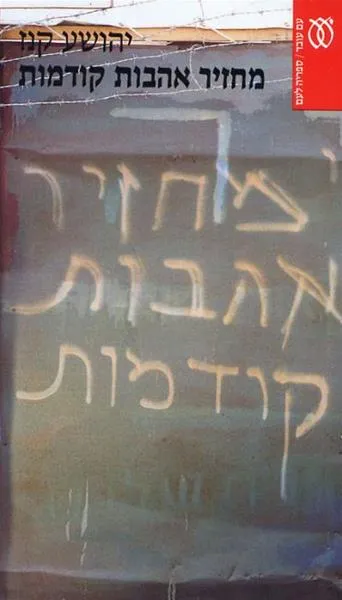 יהושע קנז
מחזיר אהבות קודמות
עם עובד / ספריה לעם
מחזיר
אהבות
קודמות